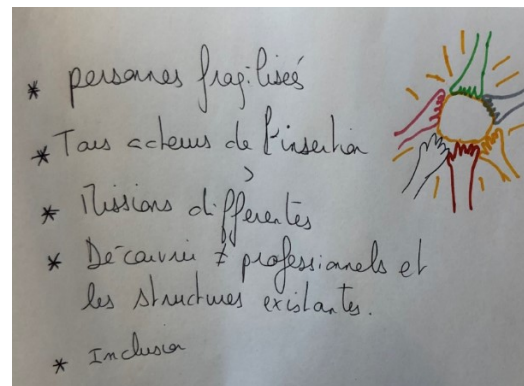 * personnes fragilisés
* Tous acteurs de l'insertion
* Missions différentes
* Découvrir ≠ professionnels et
les structures existantes.
* Inclusion